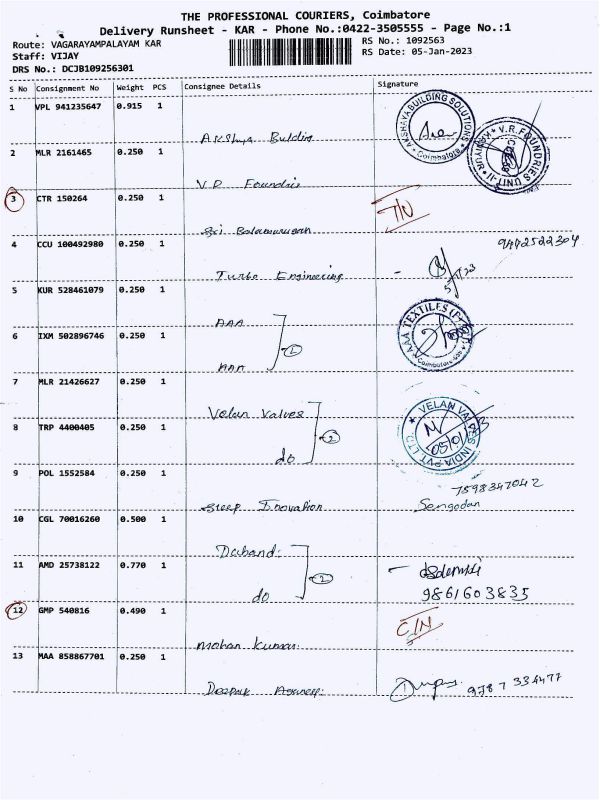 THE PROFESSIONAL COURIERS, Coimbatore
Delivery Runsheet - KAR - Phone No.:0422-3505555 - Page No.:1
Route: VAGARAYAMPALAYAM KAR
RS No.: 1092563
Staff: VIJAY
RS Date: 05-Jan-2023
DRS No.: DCJB109256301
S No Consignment No Weight PCS Consignee Details Signature
1 VPL 941235647 0.915 1
Akshya Building
AKSHAYA BUILDING SOLUTIONS
Coimbatore
2 MLR 2161465 0.250 1
V.R. FOUNDRIES UNIT-II
V.R Foundries
3 CTR 150264 0.250 1
T/N
Sri Balamurugan
4 CCU 100492980 0.250 1
9442522304
Turbo Engineering
5/1/23
5 KUR 528461079 0.250 1
AAA
6 IXM 502896746 0.250 1
AAA TEXTILES
AAA
7 MLR 21426627 0.250 1
Velan Valves
2
8 TRP 4400405 0.250 1
VELAN VALVES INDIA PVT. LTD
05/01/23
do
9 POL 1552584 0.250 1
7598347042
Sleep Inovation
Sengodan
10 CGL 70016260 0.500 1
2
11 AMD 25738122 0.770 1
do
9861603835
12 GMP 540816 0.490 1
C/N
Mohan Kumar.
13 MAA 858867701 0.250 1
Deepak
9787 334477